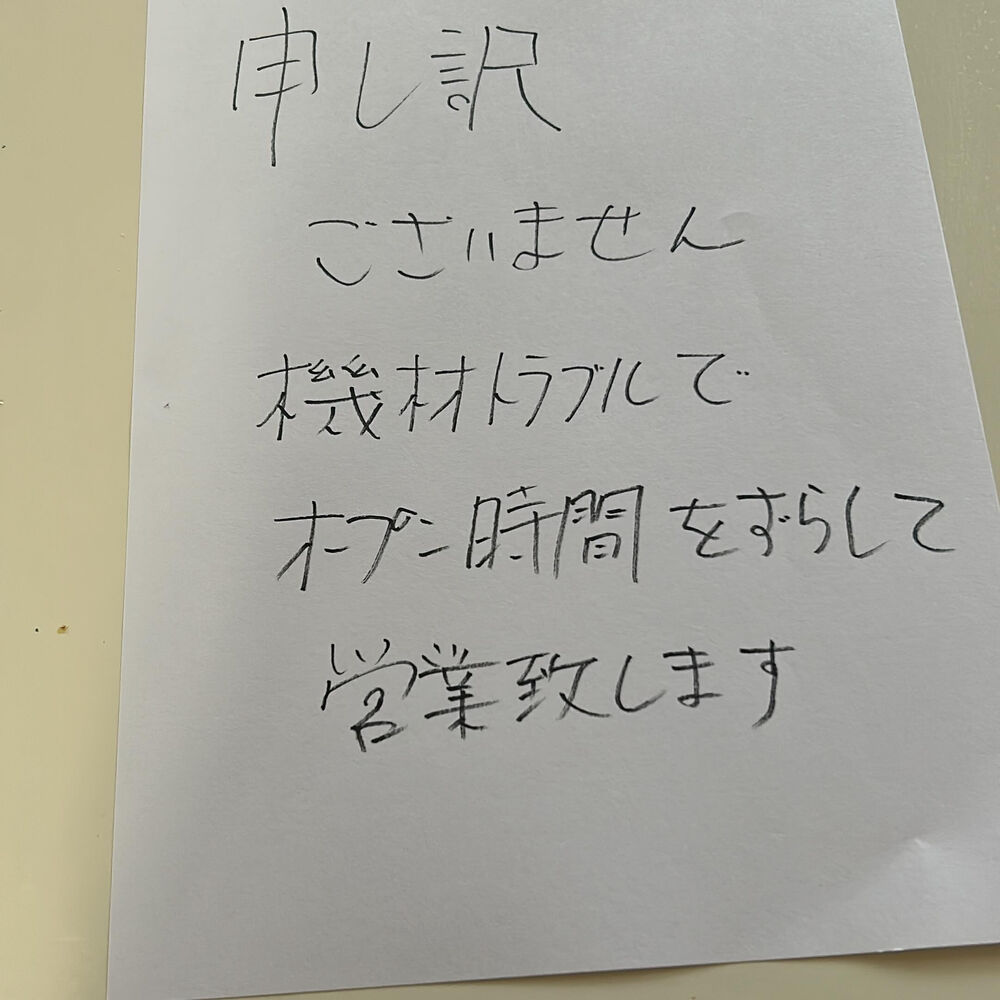 申し訳
ございません
機材トラブルで
オープン時間をずらして
営業致します